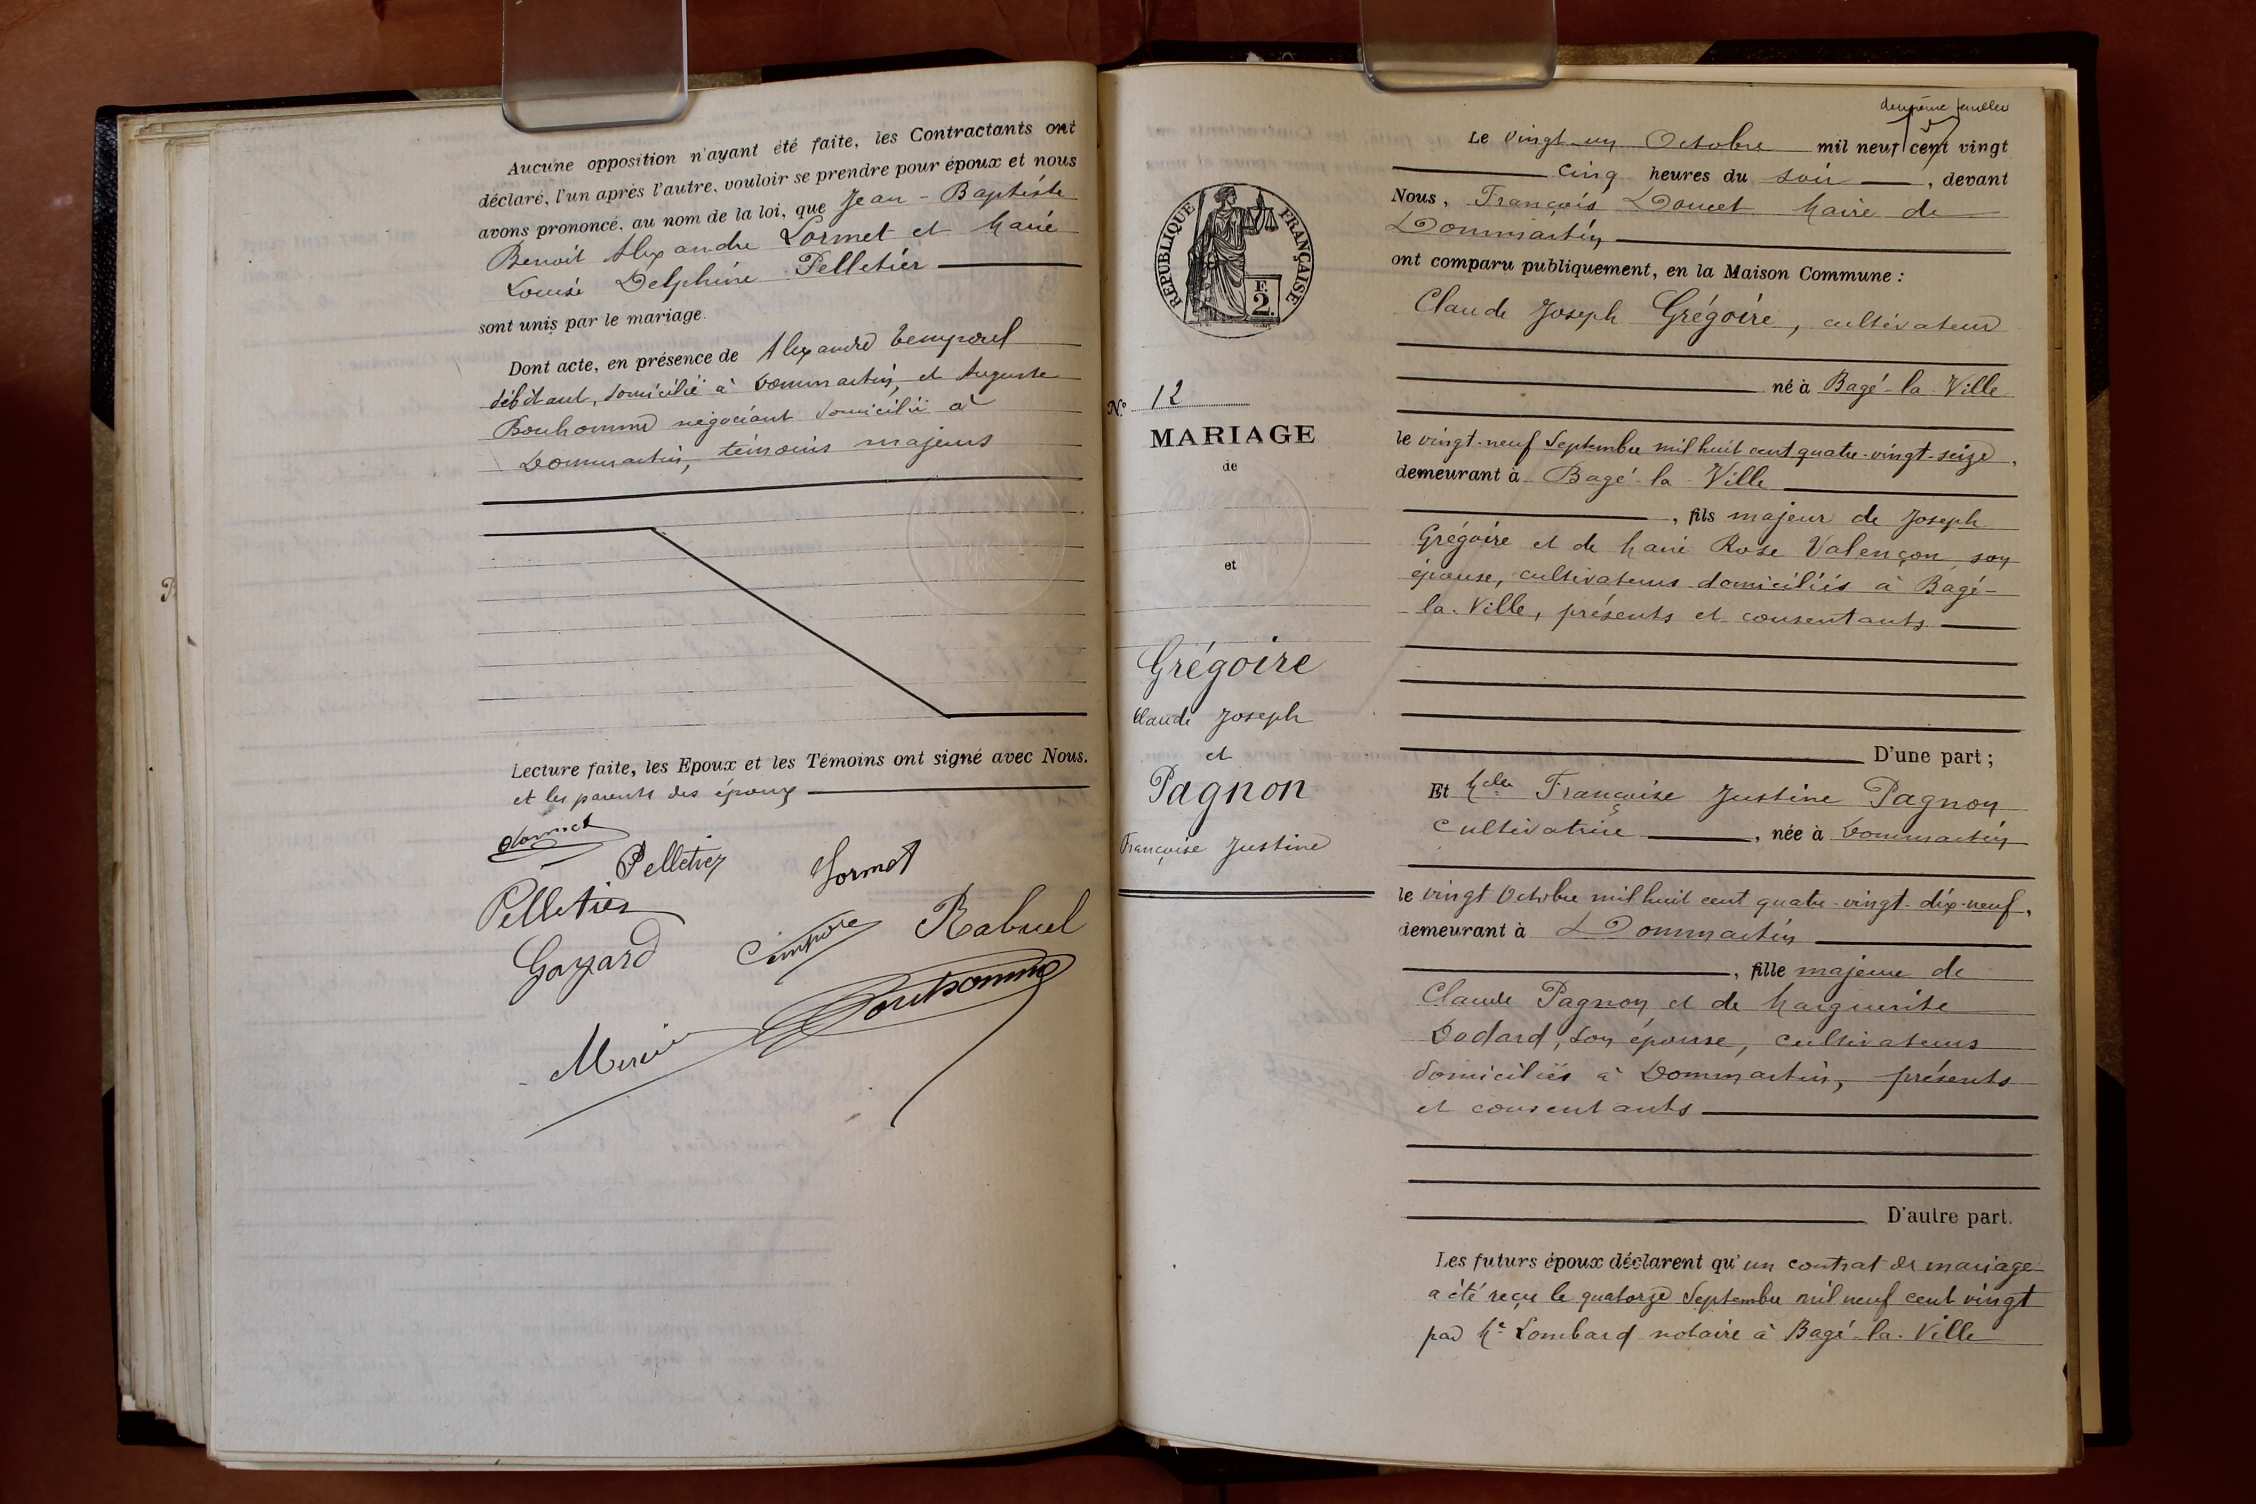 Aucune opposition n'ayant été faite, les Contractants ont
déclaré, l'un après l'autre, vouloir se prendre pour époux et nous
avons prononcé, au nom de la loi, que Jean-Baptiste
Benoit Alexandre Lormet et Marie
Louise Delphine Pelletier
sont unis par le mariage.
Dont acte, en présence de Alexandre Temporel
débitant, domicilié à Dommartin, et Auguste
Bonhomme négociant domicilié à
Dommartin, témoins majeurs
Lecture faite, les Epoux et les Témoins ont signé avec Nous.
et les parents des époux
Pelletier
Lormet
Pelletier
Rabuel
Gayard
Bonhomme
Mercier
RÉPUBLIQUE FRANÇAISE
F.
2.
N.º 12
MARIAGE
de
et
Grégoire
Claude Joseph
et
Pagnon
Françoise Justine
deuxième feuillet
Le vingt-un Octobre mil neuf cent vingt
cinq heures du soir, devant
Nous, François Doucet Maire de
Dommartin
ont comparu publiquement, en la Maison Commune :
Claude Joseph Grégoire, cultivateur
né à Bagé-la-Ville
le vingt-neuf Septembre mil huit cent quatre-vingt-seize,
demeurant à Bagé-la-Ville
, fils majeur de Joseph
Grégoire et de Marie Rose Valençon son
épouse, cultivateurs domiciliés à Bagé-
-la-Ville, présents et consentants
D'une part ;
Et Melle Françoise Justine Pagnon
cultivatrice, née à Dommartin
le vingt Octobre mil huit cent quatre-vingt-dix-neuf,
demeurant à Dommartin
, fille majeure de
Claude Pagnon et de Marguerite
Dodard, son épouse, cultivateurs
domiciliés à Dommartin, présents
et consentants
D'autre part.
Les futurs époux déclarent qu'un contrat de mariage
a été reçu le quatorze Septembre mil neuf cent vingt
par Me Lombard notaire à Bagé-la-Ville